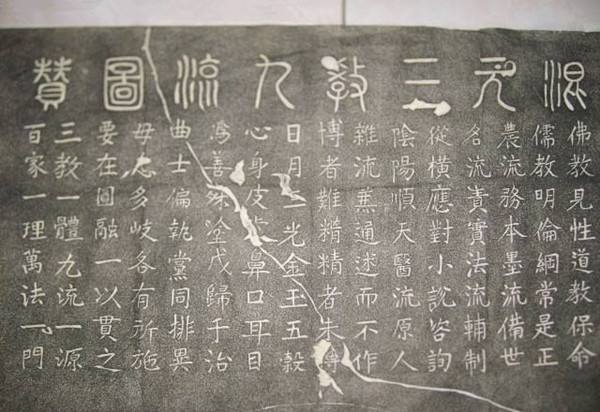 混元三教九流圖贊
佛教見性道教保命
儒教明倫綱常是正
農流務本墨流備世
名流責實法流輔制
從橫應對小說咨詢
陰陽順天醫流原人
雜流兼通述而不作
博者難精精者未博
日月三光金玉五穀
心身皮鼻口耳目
爲善殊塗咸歸于治
曲士偏執黨同排異
毋多岐各有所施
要在圓融一以貫之
三教一體九流一源
百家一理萬法一門